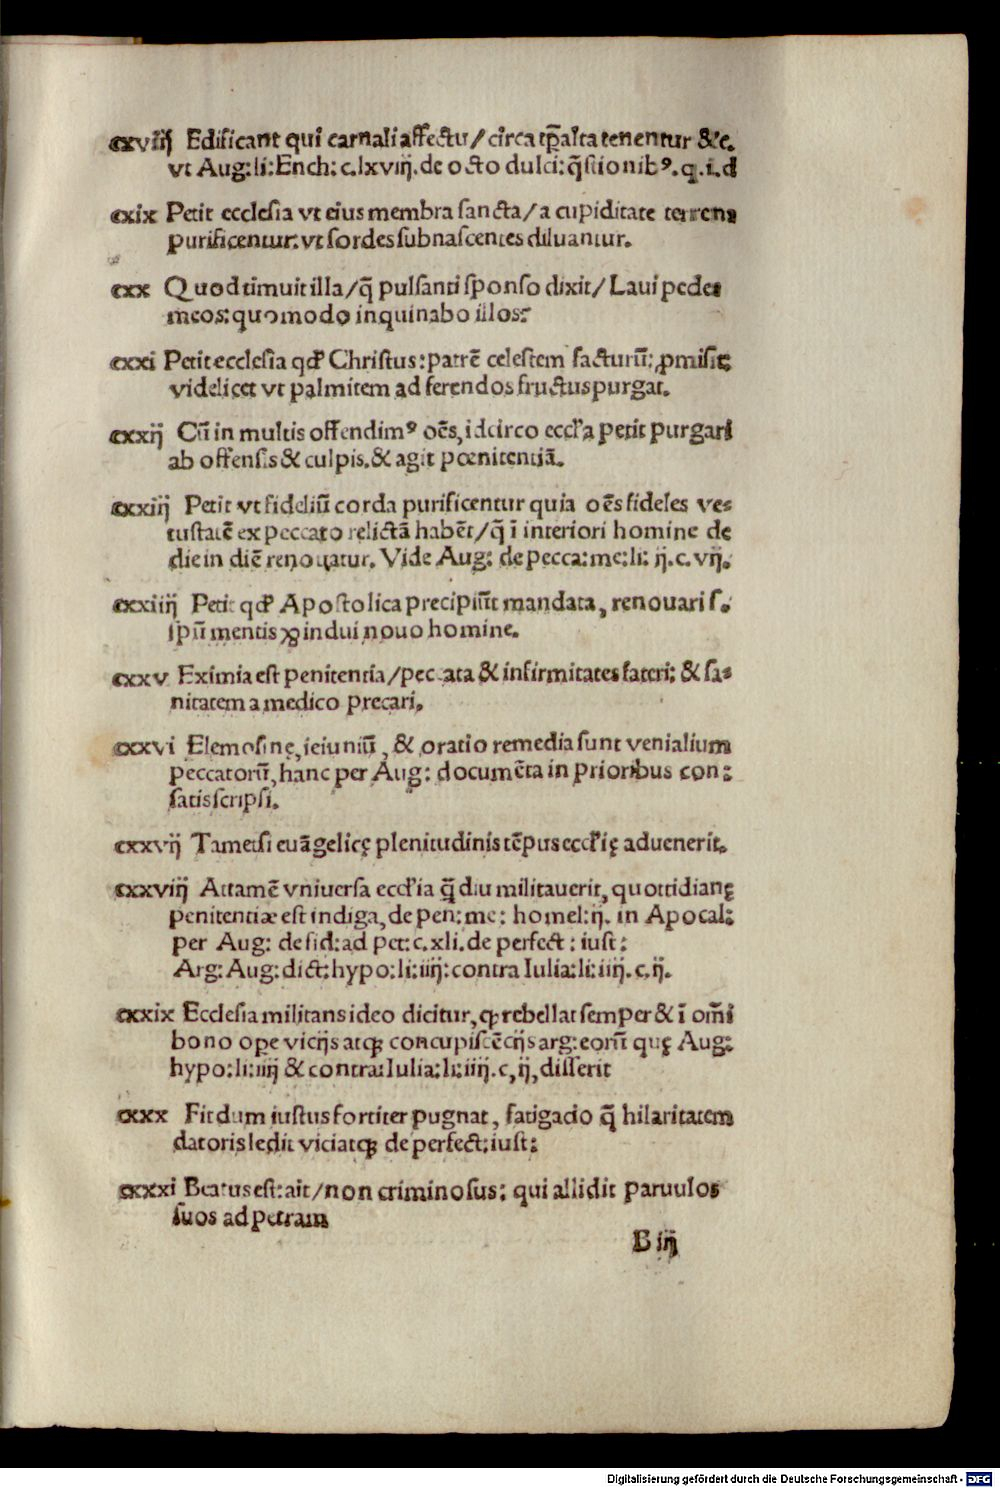 cxviij Edificant qui carnali affectu/circa tp̄alia tenentur &c.
vt Aug:li:Ench:c.lxviij.de octo dulci:q̄stionibꝰ.q.i.d
cxix Petit ecclesia vt eius membra sancta/a cupiditate terrena
purificentur.vt sordes subnascentes diluantur.
cxx Quod timuit illa/q̄ pulsanti sponso dixit/Laui pedes
meos:quomodo inquinabo illos?
cxxi Petit ecclesia qd̛ Christus:patrē celestem facturū:ꝓmisit;
videlicet vt palmitem ad ferendos fructus purgat.
cxxij Cū in multis offendimꝰ oēs,idcirco eccl̛a petit purgari
ab offensis & culpis.& agit pœnitentiā.
cxxiij Petit vt fideliū corda purificentur quia oēs fideles ve⸗
tustatē ex peccato relictā habēt/q̄ ī interiori homine de
die in diē renouatur. Vide Aug: de pecca:me:li: ij.c.vij.
cxxiiij Petit qd̛ Apostolica precipiūt mandata, renouari s.
spū mentis ⁊ꝙ indui nouo homine.
cxxv Eximia est penitentia/peccata & infirmitates fateri: & sa⸗
nitatem a medico precari.
cxxvi Elemosinę,ieiuniū, & oratio remedia sunt venialium
peccatorū,hanc per Aug: documēta in prioribus con:
satis scripsi.
cxxvij Tametsi euāgelicę plenitudinis tēpus eccl̛ię aduenerit.
cxxviij Attamē vniuersa eccl̛ia q̄ꝫdiu militauerit,quottidianę
penitentiæ est indiga,de pen:me: homel:ij. in Apocal:
per Aug: de fid:ad pet:c.xli.de perfect:iust:
Arg:Aug:dict:hypo:li:iiij:contra Iulia:li:iiij.c.ij.
cxxix Ecclesia militans ideo dicitur,ꝙ rebellat semper & ī om̄i
bono ope̱ vicijs atqꝫ concupiscēcijs arg:eorū quę Aug:
hypo:li:iiij & contra:Iulia:li:iiij.c,ij,disserit
cxxx Fit dum iustus fortiter pugnat, fatigacio q̄ hilaritatem
datoris ledit viciatqꝫ de perfect:iust:
cxxxi Beatus est:ait/non criminosus: qui allidit paruulos
suos ad petram
B iij
Digitalisierung gefördert durch die Deutsche Forschungsgemeinschaft - DFG